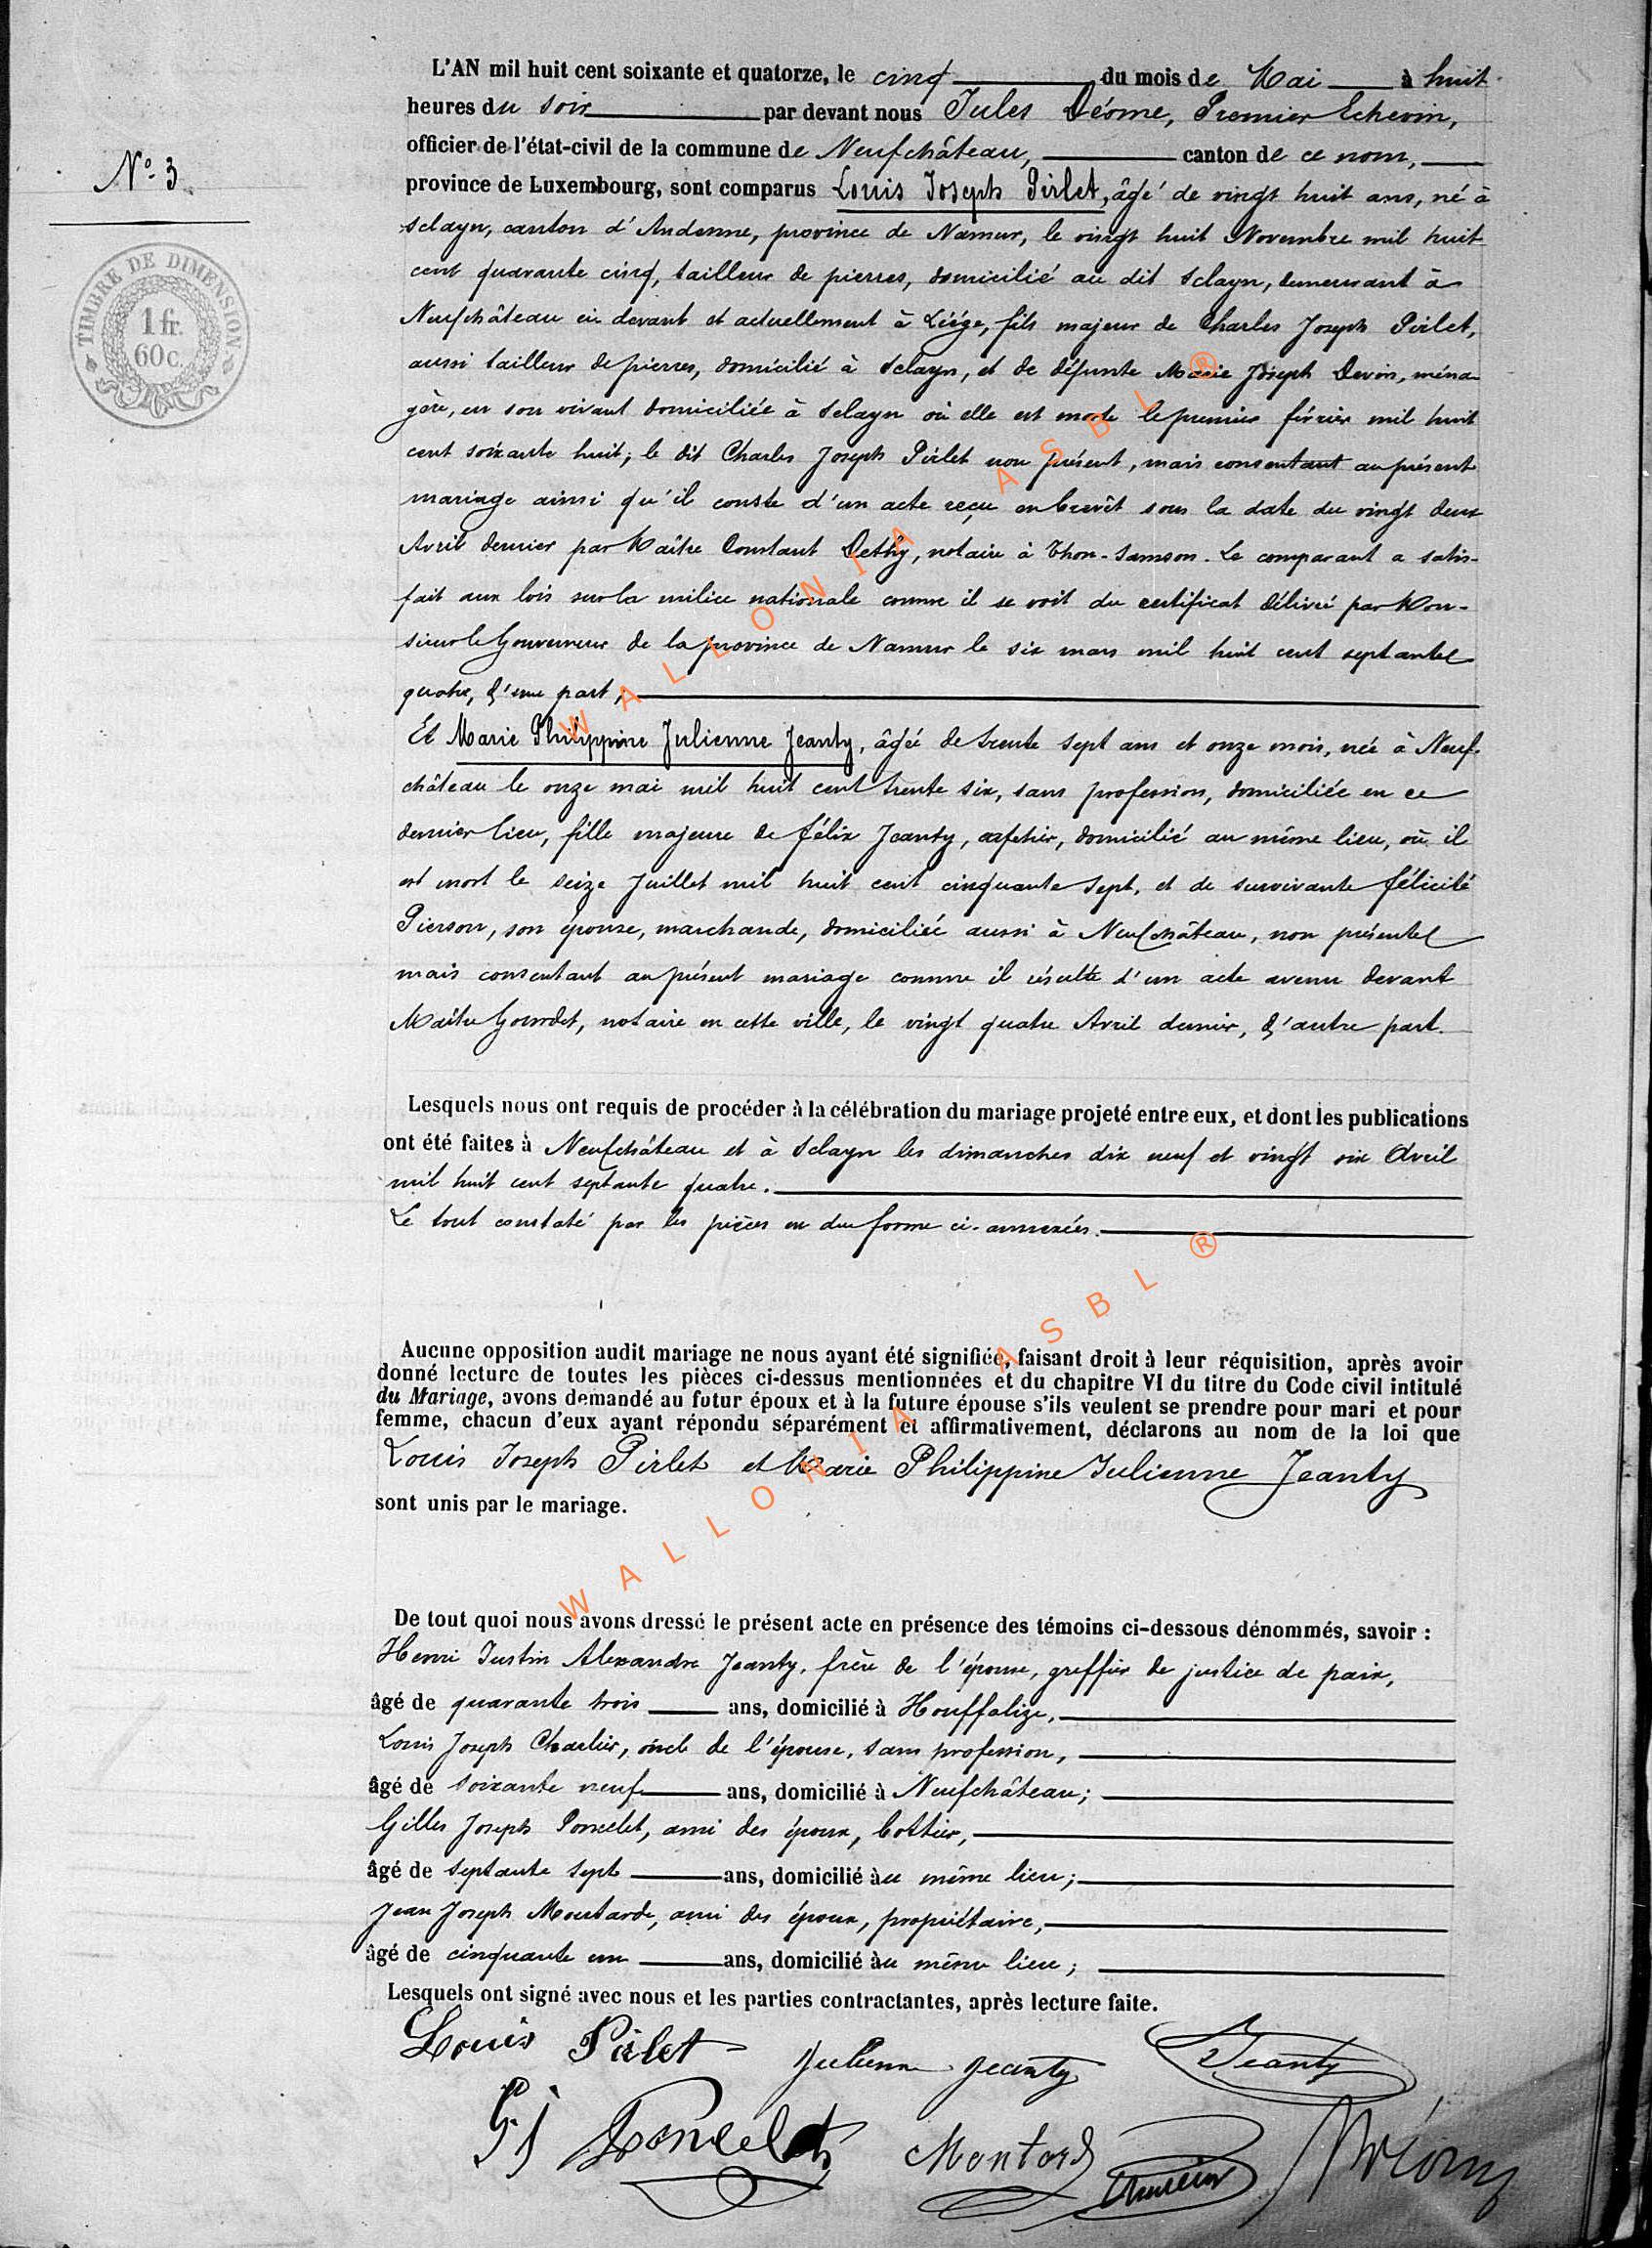 L'AN mil huit cent soixante et quatorze, le cinq du mois de Mai à huit
heures du soir par devant nous Jules Déome, Premier Echevin,
officier de l'état-civil de la commune de Neufchâteau, canton de ce nom,
N° 3
province de Luxembourg, sont comparus Louis Joseph Pirlet, âgé de vingt huit ans, né à
Sclayn, canton d'Andenne, province de Namur, le vingt huit Novembre mil huit
TIMBRE DE DIMENSION
1 fr.
60 c.
cent quarante cinq, tailleur de pierres, domicilié au dit Sclayn, demeurant à
Neufchâteau ci devant et actuellement à Liége, fils majeur de Charles Joseph Pirlet,
aussi tailleur de pierres, domicilié à Sclayn, et de défunte Marie Joseph Devin, ména
gère, en son vivant domiciliée à Sclayn où elle est morte le premier février mil huit
cent soixante huit; le dit Charles Joseph Pirlet non présent, mais consentant au présent
mariage ainsi qu'il conste d'un acte reçu en brevêt sous la date du vingt deux
Avril dernier par Maître Constant Dethy, notaire à Thon-Samson. Le comparant a satis-
fait aux lois sur la milice nationale comme il se voit du certificat délivré par Mon-
sieur le Gouverneur de la province de Namur le six mars mil huit cent septante
quatre, d'une part,
Et Marie Philippine Julienne Jeanty, âgée de trente sept ans et onze mois, née à Neuf-
château le onze mai mil huit cent trente six, sans profession, domiciliée en ce
dernier lieu, fille majeure de félix Jeanty, cafetier, domicilié au même lieu, où il
est mort le seize Juillet mil huit cent cinquante sept, et de survivante félicité
Pierson, son épouse, marchande, domiciliée aussi à Neufchâteau, non présente
mais consentant au présent mariage comme il résulte d'un acte avenu devant
Maître Gourdet, notaire en cette ville, le vingt quatre Avril dernier, d'autre part.
Lesquels nous ont requis de procéder à la célébration du mariage projeté entre eux, et dont les publications
ont été faites à Neufchâteau et à Sclayn les dimanches dix neuf et vingt six Avril
mil huit cent septante quatre.
Le tout constaté par les pièces en due forme ci-annexées.
Aucune opposition audit mariage ne nous ayant été signifiée, faisant droit à leur réquisition, après avoir
donné lecture de toutes les pièces ci-dessus mentionnées et du chapitre VI du titre du Code civil intitulé
du Mariage, avons demandé au futur époux et à la future épouse s'ils veulent se prendre pour mari et pour
femme, chacun d'eux ayant répondu séparément et affirmativement, déclarons au nom de la loi que
Louis Joseph Pirlet et Marie Philippine Julienne Jeanty
sont unis par le mariage.
De tout quoi nous avons dressé le présent acte en présence des témoins ci-dessous dénommés, savoir :
Henri Justin Alexandre Jeanty, frère de l'épouse, greffier de justice de paix,
âgé de quarante trois ans, domicilié à Houffalize,
Louis Joseph Charlier, oncle de l'épouse, sans profession,
âgé de soixante neuf ans, domicilié à Neufchâteau;
Gilles Joseph Poncelet, ami des époux, bottier,
âgé de septante sept ans, domicilié au même lieu;
Jean Joseph Moutarde, ami des époux, propriétaire,
âgé de cinquante un ans, domicilié au même lieu;
Lesquels ont signé avec nous et les parties contractantes, après lecture faite.
Louis Pirlet Julienne Jeanty Jeanty
G J Poncelet
WALLONIA ASBL ®
WALLONIA ASBL ®